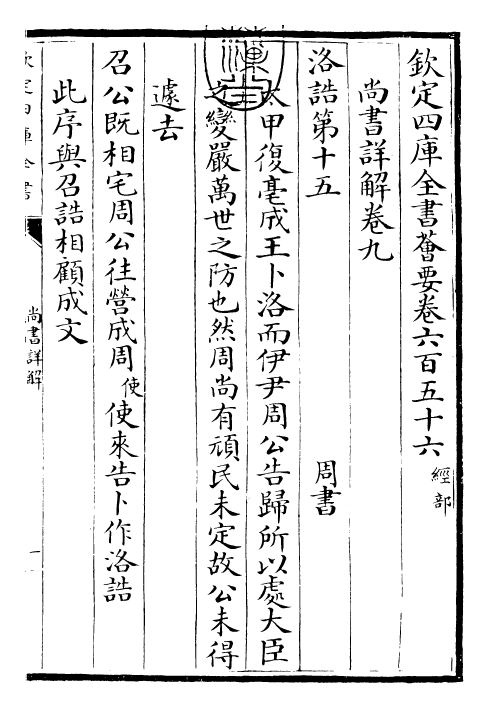 欽定四庫全書薈要卷六百五十六 經部
尚書詳解卷九
洛誥第十五 周書
太甲復亳成王卜洛而伊尹周公告歸所以處大臣
之變嚴萬世之防也然周尚有頑民未定故公未得
遽去
召公既相宅周公往營成周使使來告卜作洛誥
此序與召誥相顧成文
欽定四庫全書
尚書詳解
一